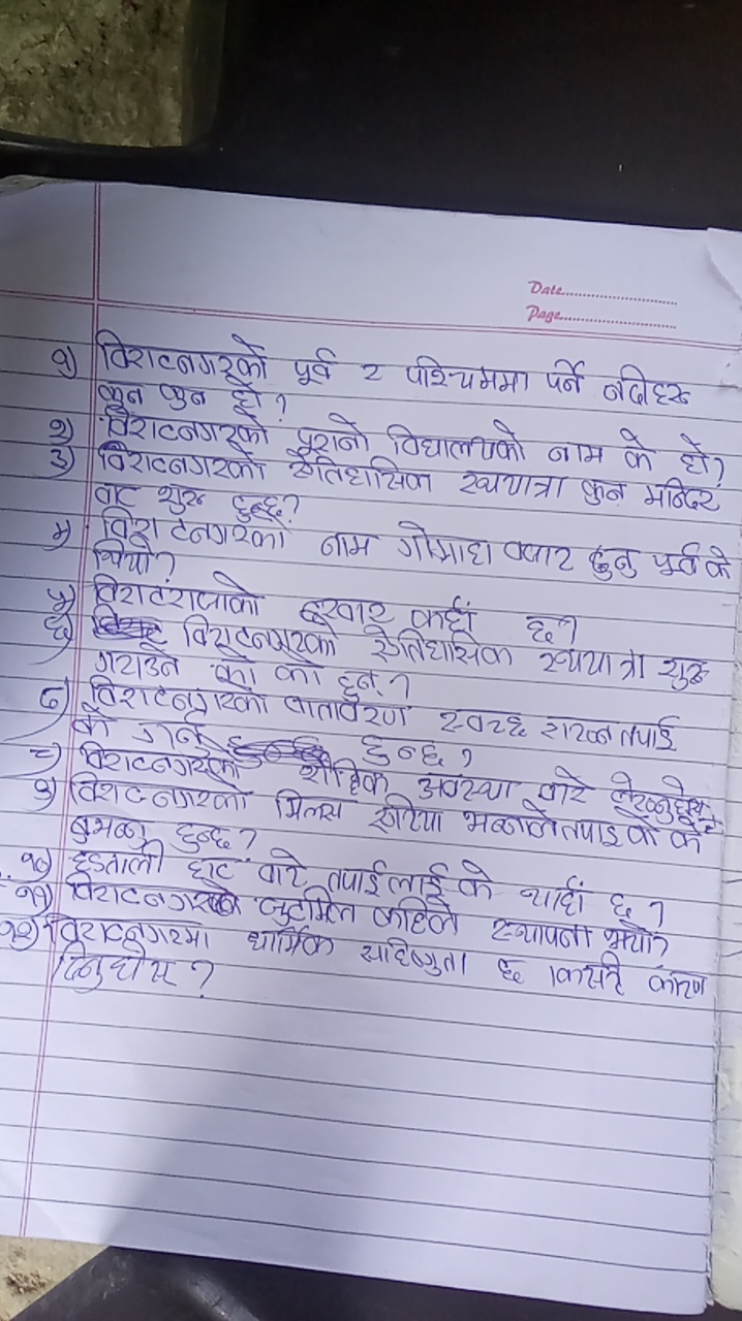 Date..............................
Page..............................
१) विराटनगरको पूर्व र पश्चिममा पर्ने नदीहरू
कुन कुन हो ?
२) विराटनगरको पूरानो विद्यालयको नाम के हो ?
३) विराटनगरको ऐतिहासिक रथयात्रा कुन मन्दिर
वाट शुरू हुन्छ ?
४) विराटनगरको नाम गोग्राहा वजार हुनु पूर्व के
थियो ?
५) विराटराजाको दरवार कहाँ छ ?
६) विराटनगरको ऐतिहासिक रथयात्रा शुरू
गराउने को को हुन् ?
७) विराटनगरको वातावरण स्वच्छ राख्न तपाई
के गर्नु हुन्छ ?
८) विराटनगरको शैक्षिक अवस्था वारे
९) विराटनगरको मिल्स एरिया भन्नाले तपाइ के के
बुझ्नु हुन्छ ?
१०) हडताली हाट वारे तपाईलाई के थाहाँ छ ?
११) विराटनगरको जुटमिल कहिले स्थापना भयो ?
१२) विराटनगरमा धार्मिक सहिष्णुता छ कसरी कारण
दिनुहोस् ?